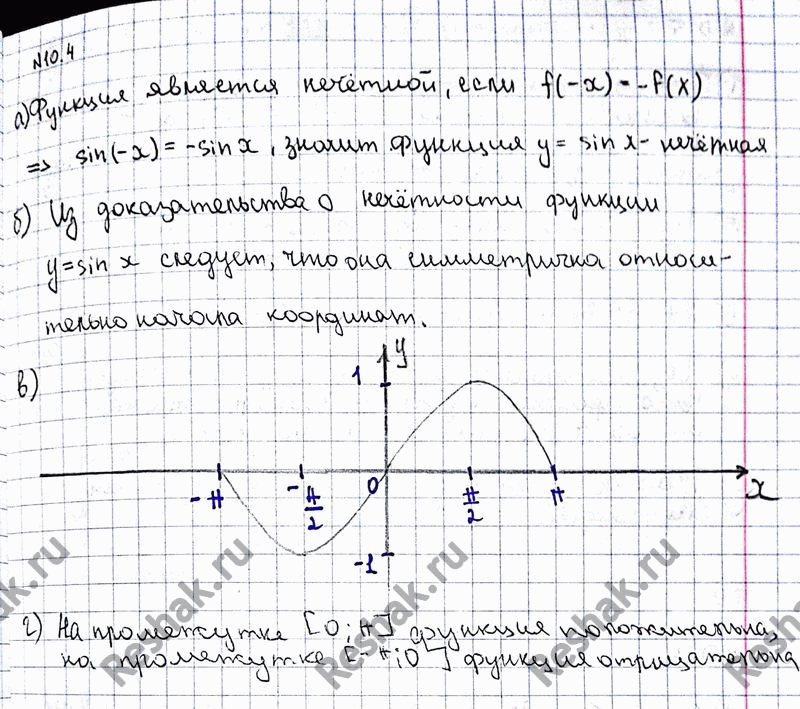 №10.4
а) Функция является нечётной, если f(-x) = -f(x)
=> sin(-x) = -sin x, значит функция y = sin x - нечётная
б) Из доказательства о нечётности функции
y = sin x следует, что она симметрична относи-
тельно начала координат.
в)
y
1
-π -π/2 0 π/2 π x
-1
г) На промежутке [0; π] функция положительна,
на промежутке [-π; 0] функция отрицательна
Reshak.ru Reshak.ru Reshak.ru Reshak.ru